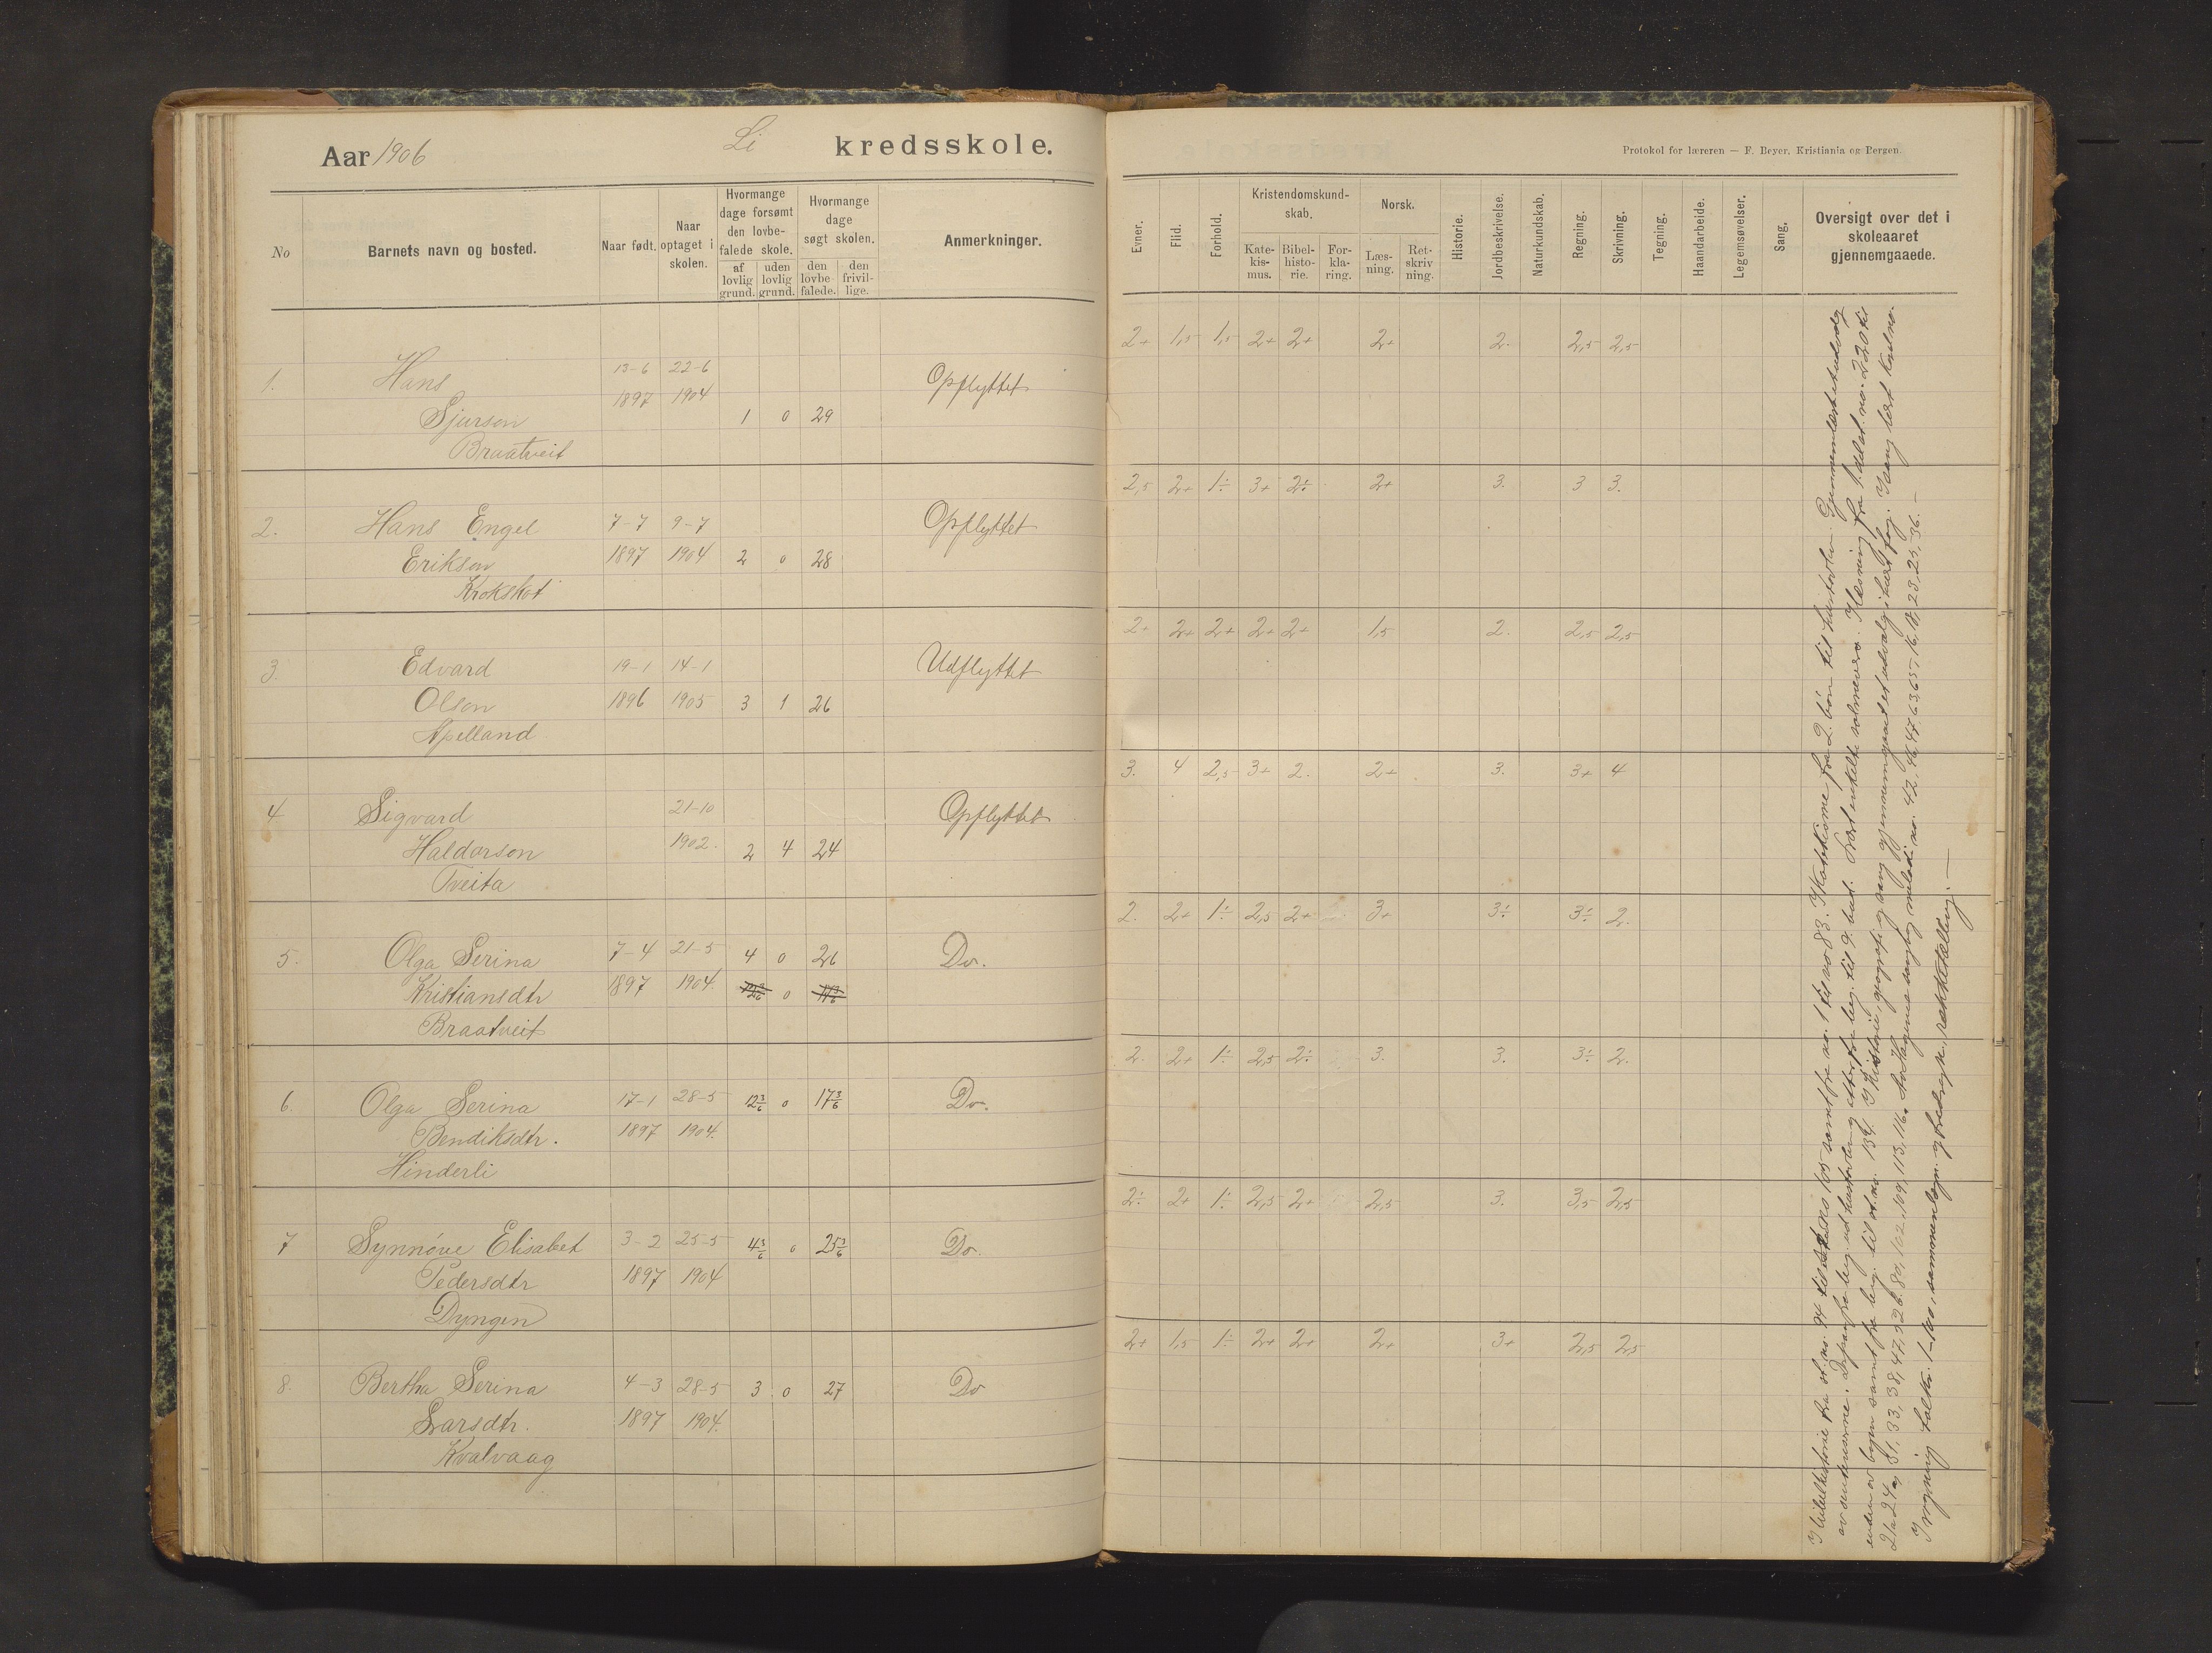 Aar 1906 Li kredsskole.
Protokol for læreren — F. Beyer. Kristiania og Bergen.
No Barnets navn og bosted. Naar født. Naar optaget i skolen. Hvormange dage forsømt den lovbefalede skole. af lovlig grund. uden lovlig grund. Hvormange dage søgt skolen. den lovbefalede. den frivillige. Anmerkninger.
Evner. Flid. Forhold. Kristendomskundskab. Katekismus. Bibelhistorie. Forklaring. Norsk. Læsning. Retskrivning. Historie. Jordbeskrivelse. Naturkundskab. Regning. Skrivning. Tegning. Haandarbeide. Legemsøvelser. Sang. Oversigt over det i skoleaaret gjennemgaaede.
2+ 1,5 1,5 2+ 2+ 2+ 2. 2,5 2,5
1. Hans 13-6 22-6 Opflyttet
Sjurson 1897 1904 1 0 29
Braatveit
2,5 2+ 1÷ 3+ 2÷ 2+ 3. 3 3.
2. Hans Engel 7-7 9-7 Opflyttet
Erikson 1897 1904 2 0 28
Krokskot
2+ 2+ 2+ 2+ 2+ 1,5 2. 2,5 2,5
3. Edvard 19-1 14-1 Udflyttet
Olson 1896 1905 3 1 26
Apelland
3. 4 2,5 3+ 2. 2+ 3. 3+ 4
4 Sigvard 21-10 Opflyttet
Haldorson 1902. 2 4 24
Tveita
2. 2+ 1÷ 2,5 2+ 3+ 3÷ 3÷ 2.
5. Olga Serina 7-4 21-5 4 0 26 Do.
Kristiansdtr 1897 1904. 0
Braatveit
2. 2+ 1÷ 2,5 2÷ 3. 3. 3÷ 2.
6. Olga Serina 17-1 28-5 12 3/6 0 17 3/6 Do.
Bendiksdtr. 1897 1904.
Hinderli
2÷ 2+ 1÷ 2,5 2+ 2,5 3. 3,5 2,5
7 Synnöve Elisabet 3-2 25-5 4 3/6 0 25 3/6 Do.
Pedersdtr 1897 1904
Dyngen
2+ 1,5 1÷ 2+ 2+ 2+ 3+ 2,5 2,5
8. Bertha Serina 4-3 28-5 3 0 27 Do
Larsdtr. 1897 1904.
Kvalvaag
I bibelhistorie fra st. no. 94 til no 105 samt fra no. 1 til no 83. I Katekisme fra 2. bøn til hustavlen. Gjennemlæst et udvalg
av sentenserne. fra beg. til 9. bud. Lært enkelte salmevers. I læsning fra 1. del st. no. 220 til
enden av bogen samt fra beg. til st. no. 134. I Historie, geografi og sang gjennemgaaet et udvalg i hvert fag. I sang lært koral no.
2, 33, 38, 47, 80, 102, 109, 113, 116. melodi no. 42, 46, 47, 63, 65, 16, 18, 23, 25, 36. —
I regning talkr. 1-100, rækketælling. —